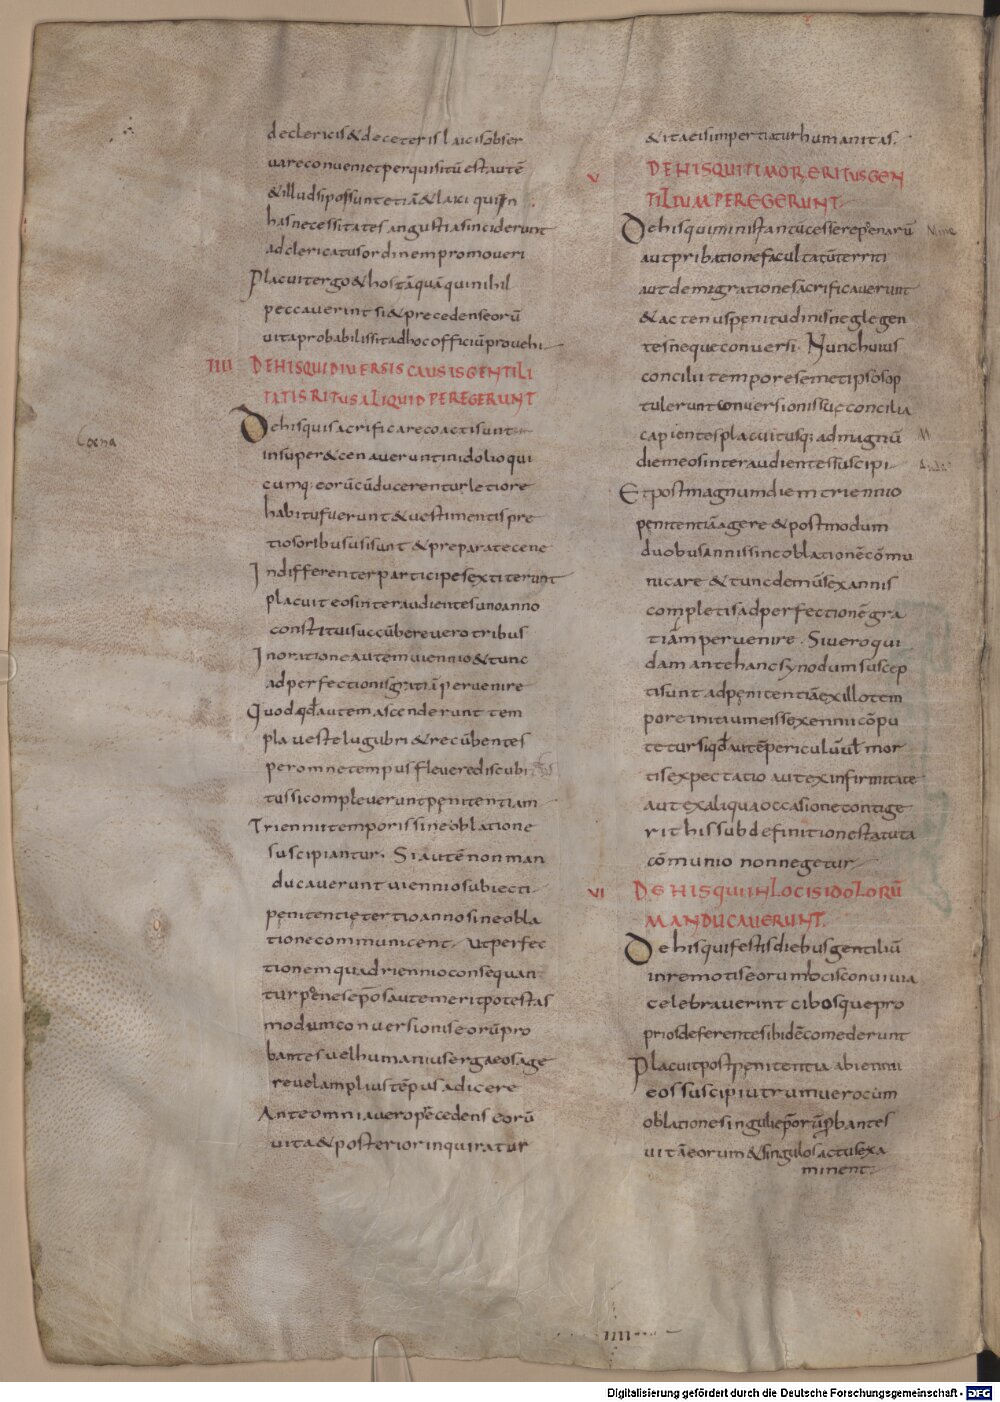 declericis&deceteris laicis obser
uareconueniet perquisitū estautē
&illudsipossuntetiā&laici quiin
hasnecessitates angustiasinciderunt
adclericatusordinem promoueri
Placuitergo&hostāquāquinihil
peccauerint si&precedenseorū
uitaprobabilissitadhocofficiūprouehi
IIII DEHISQUIDIUERSIS CAUSIS GENTILI
TATIS RITUS ALIQUID PEREGERUNT
Dehisquisacrificarecoactisunt
Coena
insuper&cenaueruntinidolioqui
cumq; eorūcūducerenturletiore
habitufuerunt&uestimentispre
tiosoribususisunt &preparatecene
Indifferenterparticipesextiterunt
placuiteosinteraudientesunoanno
constituisuccūbereuero tribus
Inorationeautem uiennio&tunc
adperfectionisgratiāperuenire
Quodqđautem ascenderunt tem
plaueste lugubri&recūbentes
peromnetempusfleuerediscubi
tussicompleueruntpenitentiam
Triennitemporissineoblatione
suscipiantur. Siautēnonman
ducauerunt uienniosubiecti
penitentiętertioannosineobla
tionecommunicent. Utperfec
tionemquadriennioconsequan
turpenesep̄osautemeritpotestas
modumconuersioniseorūpro
bantesuelhumaniusergaeosage
reuelampliustēpusadicere
Anteomniaueroprecedenseorū
uita&posteriorinquiratur
&itaeisimpertiaturhumanitas.
V DEHISQUITIMORERITUSGEN
TILIUMPEREGERUNT.
Dehisquiministantūcesserepenarū
autpribationefacultatūterriti
autdemigrationesacrificauerunt
&actenuspenitudinisneglegen
tesnequeconuersi. Nunchuius
conciliitemporesemetipsosop
tuleruntconuersionissuęconcilia
capientesplacuitusq; admagnū
diemeosinteraudientessuscipi
Etpostmagnumdiemtriennio
penitentiāagere&postmodum
duobusannissineoblationēcōmu
nicare &tuncdemūsexannis
completisadperfectionēgra
tiāmperuenire. Siueroqui
damantehancsynodumsuscep
tisunt adpenitentiāexillotem
poreinitiumeissexenniicōpu
teturSiqđautēpericulūul mor
tisexpectatio autexinfirmitate
autexaliquaoccasionecontige
rithissubdefinitionestatuta
cōmunio nonnegetur
VI DEHISQUIINLOCISIDOLORŪ
MANDUCAUERUNT.
Dehisquifestisdiebusgentiliū
inremotiseorumlocisconuiuia
celebrauerint cibosquepro
priosdeferentesibidēcomederunt
Placuitpostpenitentia abienni
eossuscipiutrumuerocum
oblationesinguliep̄orūprobantes
uitāeorum&singulosactusexa
minent.
IIII
Digitalisierung gefördert durch die Deutsche Forschungsgemeinschaft - DFG